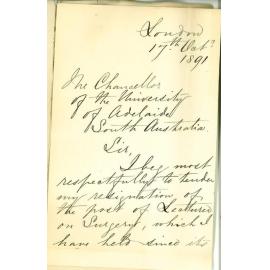 London
17th Octr
1891
The Chancellor
of the University
of Adelaide
South Australia
Sir,
I beg most
respectfully to tender
my resignation of
the post of Lecturer
on Surgery, which I
have held since its